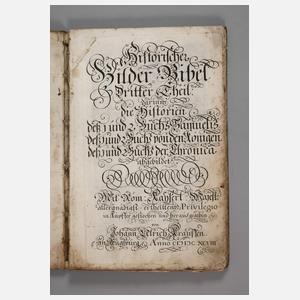 Historischer
Bilder Bibel
Dritter Theil.
darinnen
die Historien
deß 1 und 2 Buchs Samuelis
deß 1 und 2 Buchs von den Königen
deß 1 und 2 Buchs der Chronica
abgebildet.
Mit Röm: Kayserl: Majest:
allergnädigst ertheiltem Privilegio
in Kupffer gestochen und herausgegeben
von
Johann Ulrich Kraußen
in Augspurg Anno